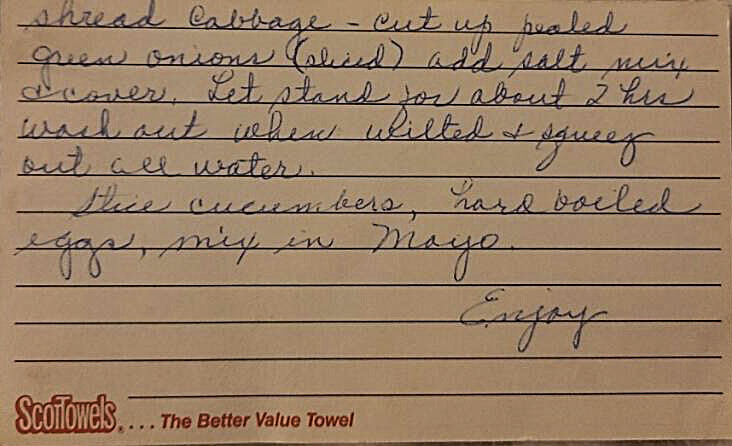 shread Cabbage - cut up pealed
green onions (sliced) add salt mix
& cover. Let stand for about 2 hrs
wash out when wilted & sqweez
out all water.
Slice cucumbers, hard boiled
eggs, mix in Mayo.
Enjoy
ScotTowels®.... The Better Value Towel